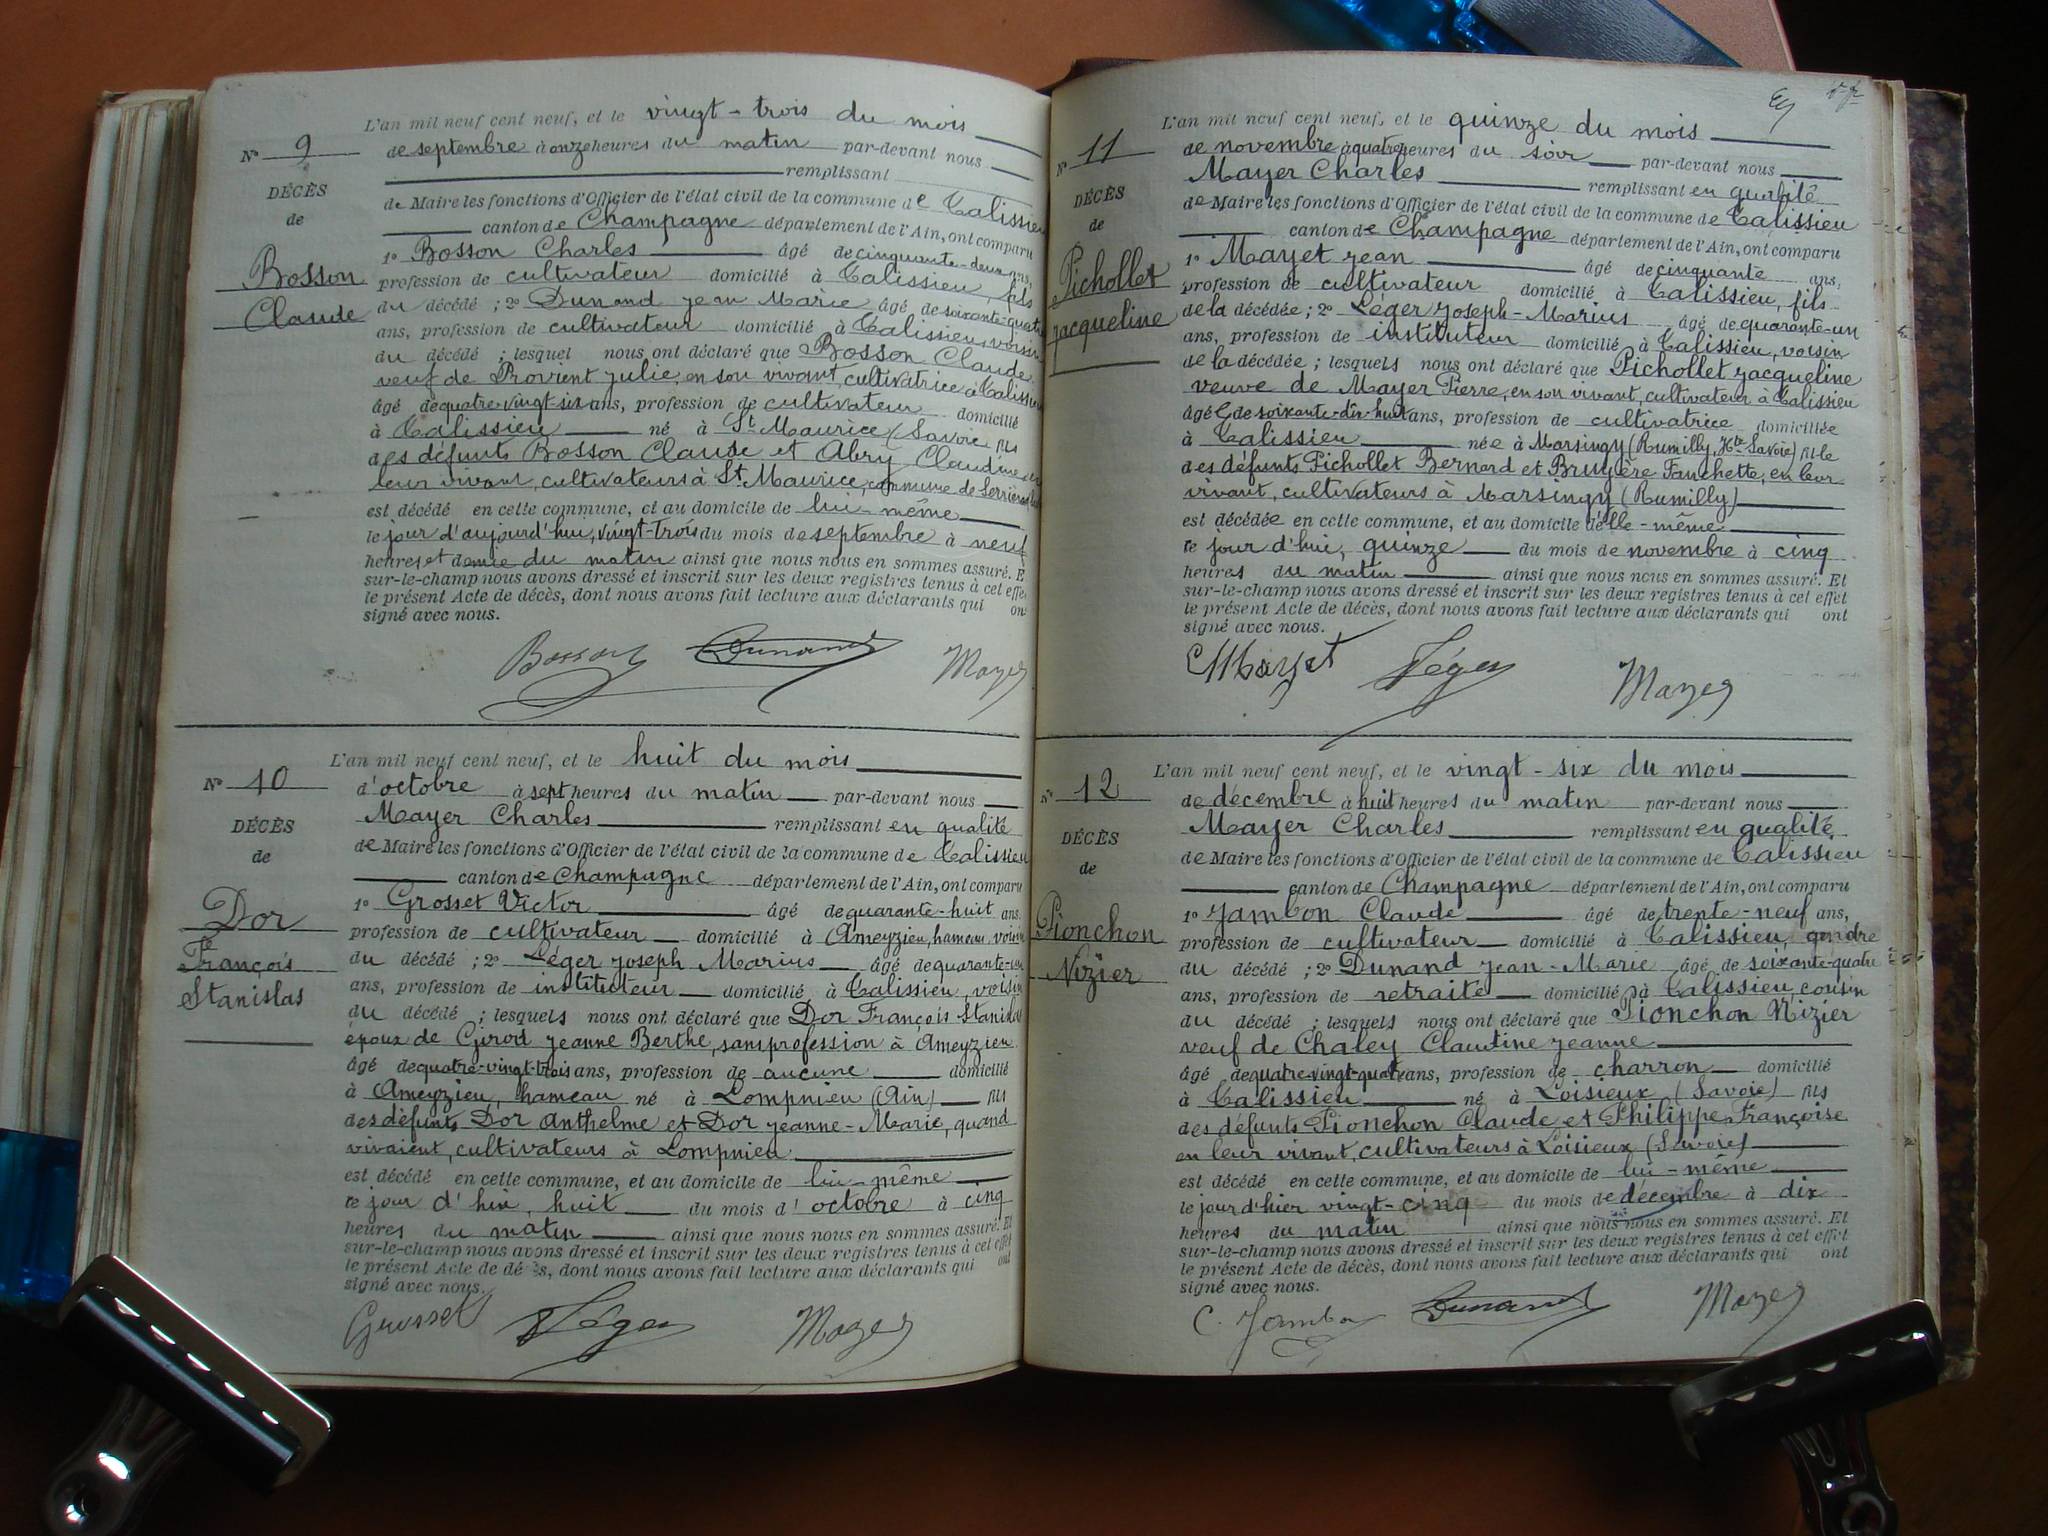 L'an mil neuf cent neuf, et le vingt-trois du mois
de septembre à onze heures du matin par-devant nous
remplissant
de Maire les fonctions d'Officier de l'état civil de la commune de Talissieu
canton de Champagne département de l'Ain, ont comparu
1º Bosson Charles âgé de cinquante-deux ans,
profession de cultivateur domicilié à Talissieu, fils
du décédé ; 2º Dunand Jean Marie âgé de soixante-quatre
ans, profession de cultivateur domicilié à Talissieu, voisin
du décédé ; lesquel nous ont déclaré que Bosson Claude
veuf de Provient Julie, en son vivant, cultivatrice à Talissieu
âgé de quatre-vingt-six ans, profession de cultivateur domicilié
à Talissieu né à St Maurice (Savoie) fils
des défunts Bosson Claude et Abry Claudine, en
leur vivant, cultivateurs à St Maurice, commune de
est décédé en cette commune, et au domicile de lui-même
le jour d'aujourd'hui, vingt-trois du mois de septembre à neuf
heures et demie du matin ainsi que nous nous en sommes assuré. Et
sur-le-champ nous avons dressé et inscrit sur les deux registres tenus à cet effet
le présent Acte de décès, dont nous avons fait lecture aux déclarants qui ont
signé avec nous.
Nº 9
DÉCÈS
de
Bosson
Claude
Bosson Dunand Mayer
L'an mil neuf cent neuf, et le huit du mois
d'octobre à sept heures du matin par-devant nous
Mayer Charles remplissant en qualité
de Maire les fonctions d'Officier de l'état civil de la commune de Talissieu
canton de Champagne département de l'Ain, ont comparu
1º Grosset Victor âgé de quarante-huit ans
profession de cultivateur domicilié à Ameyzieu, hameau, voisin
du décédé ; 2º Léger Joseph Marius âgé de quarante-un
ans, profession de instituteur domicilié à Talissieu, voisin
du décédé ; lesquels nous ont déclaré que Dor François Stanislas
époux de Girod Jeanne Berthe, sans profession à Ameyzieu
âgé de quatre-vingt-trois ans, profession de aucune domicilié
à Ameyzieu, hameau né à Lompnieu (Ain) fils
des défunts Dor Anthelme et Dor Jeanne-Marie, quand
vivaient, cultivateurs à Lompnieu
est décédé en cette commune, et au domicile de lui-même
le jour d'hui, huit du mois d'octobre à cinq
heures du matin ainsi que nous nous en sommes assuré. Et
sur-le-champ nous avons dressé et inscrit sur les deux registres tenus à cet effet
le présent Acte de décès, dont nous avons fait lecture aux déclarants qui ont
signé avec nous.
Nº 10
DÉCÈS
de
Dor
François
Stanislas
Grosset Léger Mayer
L'an mil neuf cent neuf, et le quinze du mois
de novembre à quatre heures du soir par-devant nous
Mayer Charles remplissant en qualité
de Maire les fonctions d'Officier de l'état civil de la commune de Talissieu
canton de Champagne département de l'Ain, ont comparu
1º Mayet Jean âgé de cinquante ans,
profession de cultivateur domicilié à Talissieu, fils
de la décédée ; 2º Léger Joseph-Marius âgé de quarante-un
ans, profession de instituteur domicilié à Talissieu, voisin
de la décédée ; lesquels nous ont déclaré que Pichollet Jacqueline
veuve de Mayer Pierre, en son vivant, cultivateur à Talissieu
âgée de soixante-dix-huit ans, profession de cultivatrice domiciliée
à Talissieu née à Marsingy (Rumilly, Hte Savoie) fille
des défunts Pichollet Bernard et Bruyère Fanchette, en leur
vivant, cultivateurs à Marsingy (Rumilly)
est décédée en cette commune, et au domicile d'elle-même
le jour d'hui, quinze du mois de novembre à cinq
heures du matin ainsi que nous nous en sommes assuré. Et
sur-le-champ nous avons dressé et inscrit sur les deux registres tenus à cet effet
le présent Acte de décès, dont nous avons fait lecture aux déclarants qui ont
signé avec nous.
Nº 11
DÉCÈS
de
Pichollet
Jacqueline
Mayet Léger Mayer
L'an mil neuf cent neuf, et le vingt-six du mois
de décembre à huit heures du matin par-devant nous
Mayer Charles remplissant en qualité
de Maire les fonctions d'Officier de l'état civil de la commune de Talissieu
canton de Champagne département de l'Ain, ont comparu
1º Jambon Claude âgé de trente-neuf ans,
profession de cultivateur domicilié à Talissieu, gendre
du décédé ; 2º Dunand Jean-Marie âgé de soixante-quatre
ans, profession de retraité domicilié à Talissieu, cousin
du décédé ; lesquels nous ont déclaré que Pionchon Nizier
veuf de Chaley Claudine Jeanne
âgé de quatre-vingt-quatre ans, profession de charron domicilié
à Talissieu né à Loisieux (Savoie) fils
des défunts Pionchon Claude et Philippe Françoise
en leur vivant, cultivateurs à Loisieux (Savoie)
est décédé en cette commune, et au domicile de lui-même
le jour d'hier vingt-cinq du mois de décembre à dix
heures du matin ainsi que nous nous en sommes assuré. Et
sur-le-champ nous avons dressé et inscrit sur les deux registres tenus à cet effet
le présent Acte de décès, dont nous avons fait lecture aux déclarants qui ont
signé avec nous.
Nº 12
DÉCÈS
de
Pionchon
Nizier
C. Jambon Dunand Mayer